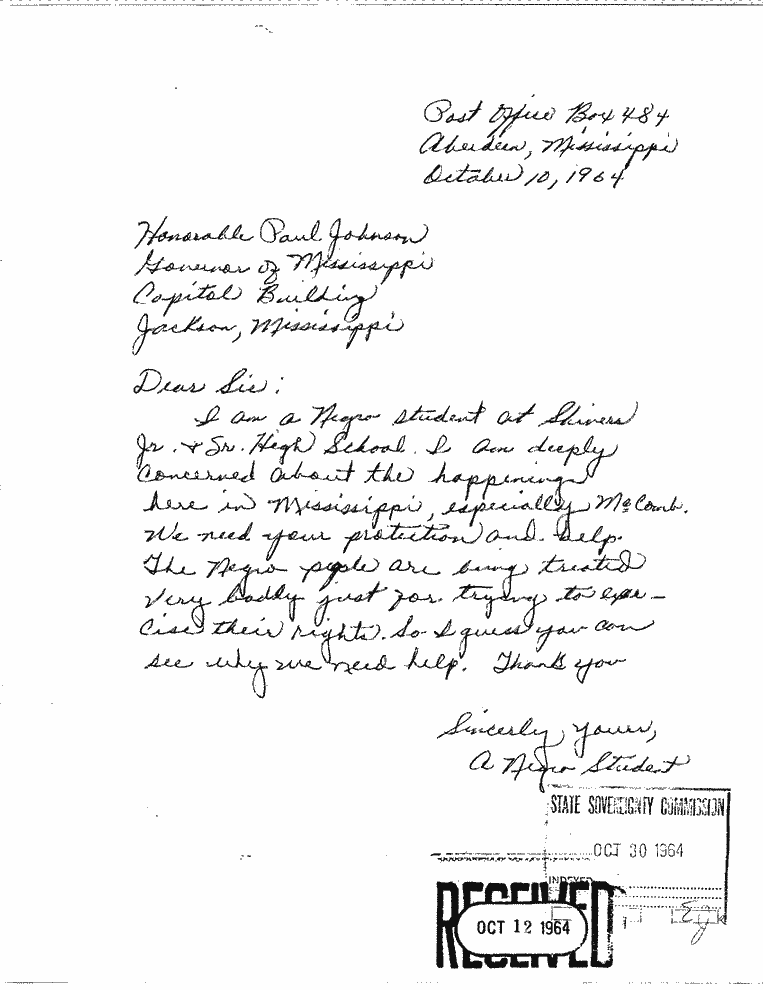 Post Office Box 484
Aberdeen, Mississippi
October 10, 1964
Honorable Paul Johnson
Governor of Mississippi
Capitol Building
Jackson, Mississippi
Dear Sir:
I am a Negro student at Shivers
Jr. & Sr. High School. I am deeply
concerned about the happenings
here in Mississippi, especially McComb.
We need your protection and help.
The Negro people are being treated
very badly just for trying to exer-
cise their rights. So I guess you can
see why we need help. Thank you
Sincerly yours,
A Negro Student
STATE SOVEREIGNTY COMMISSION
OCT 30 1964
INDEXED
RECEIVED
OCT 12 1964